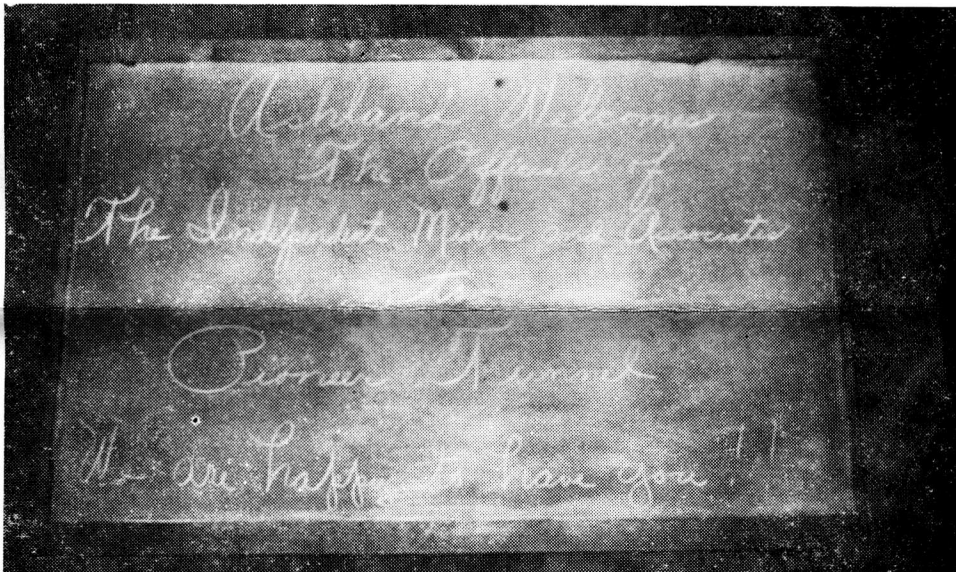 Ashland Welcomes
The Officials of
The Independent Miners and Associates
to
Pioneer Tunnel
We are happy to have you !!